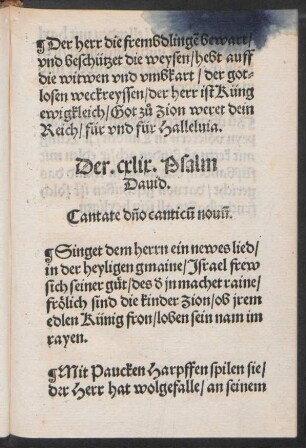 ¶Der herr die frembdlingē bewart/
vnd beschützet die weysen/ hebt auff
die witwen vnd vmbkart/ der got-
losen weckreyssen/ der herr ist Küng
ewigkleich/ Got zů Zion weret dein
Reich/ für vnd für Halleluia.
Der. cxlix. Psalm
Dauid.
Cantate dño canticū nouū.
¶Singet dem herrn ein newes lied/
in der heyligen gmaine/ Israel frew
sich seiner güt/ des d' jn machet raine/
frölich sind die kinder Zion/ ob jrem
edlen Künig fron/ loben sein nam im
rayen.
¶Mit Paucken Harpffen spilen sie/
der Herr hat wolgefalle/ an seinem